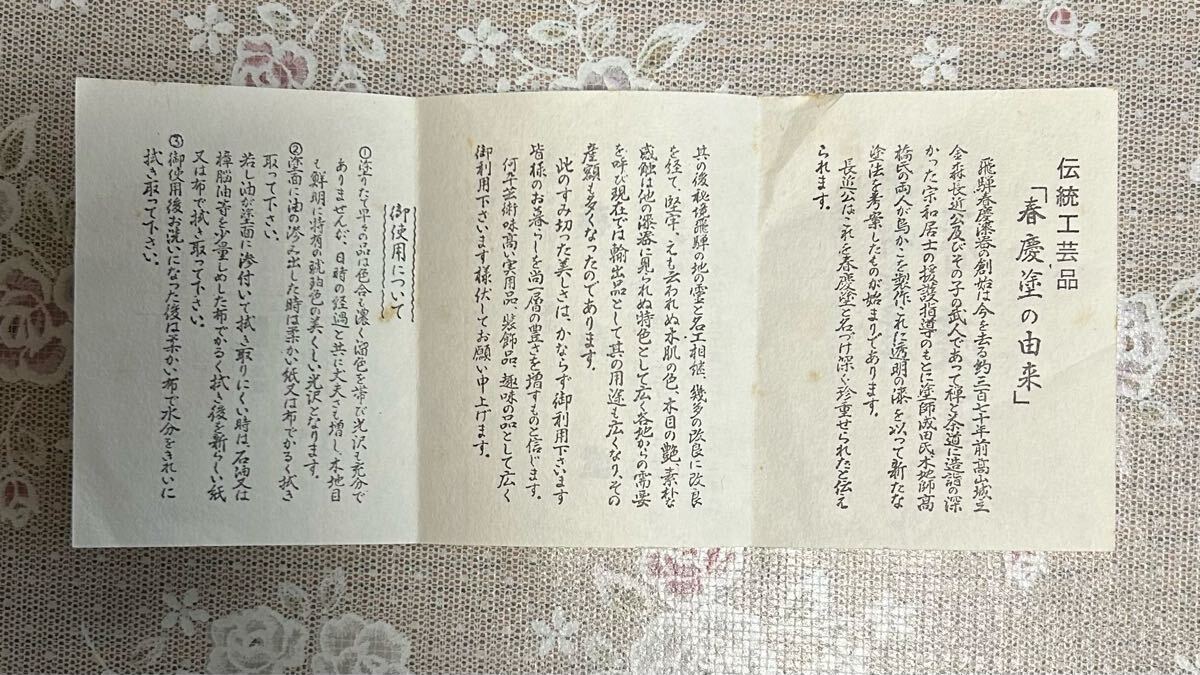 伝統工芸品
「春慶塗の由来」
飛騨春慶漆器の創始は今を去る約三百七十年前高山城主
金森長近公及びその子の武人であって禅と茶道に造詣の深
かった宗和居士の援護指導のもとに塗師成田氏木地師高
橋氏の両人が鳥かごを製作、これに透明の漆を以って新たな
塗法を考案したものが始まりであります。
長近公は、これを春慶塗と名づけ深く珍重せられたと伝え
られます。
其の後秘境飛騨の地の霊と名工相継、幾多の改良に改良
を経て、堅牢、えも云われぬ木肌の色、木目の艶、素朴な
感触は他の漆器に見られぬ特色として広く各地からの需要
を呼び現在では輸出品として其の用途も広くなり、その
産額も多くなったのであります。
此のすみ切った美しさは、かならず御利用下さいます
皆様のお暮らしを尚一層の豊さを増すものと信じます。
何卒芸術味高い実用品、装飾品、趣味の品として広く
御利用下さいます様伏してお願い申上げます。
御使用について
①塗りたて早々の品は色合も濃く留色を帯び光沢も充分で
ありませんが、日時の経過と共に丈夫さも増し、木地目
も鮮明に特有の琥珀色の美くしい光沢となります。
②塗面に油の滲み出した時は柔かい紙又は布でかるく拭き
取って下さい。
若し油が塗面に滲付いて拭き取りにくい時は、石油又は
樟脳油等を少量しめした布でかるく拭き後を新らしい紙
又は布で拭き取って下さい。
③御使用後お洗いになった後は柔かい布で水分をきれいに
拭き取って下さい。